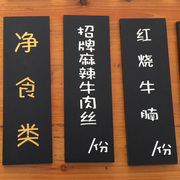 净食类
招牌麻辣牛肉丝
/份
红烧牛腩
/份